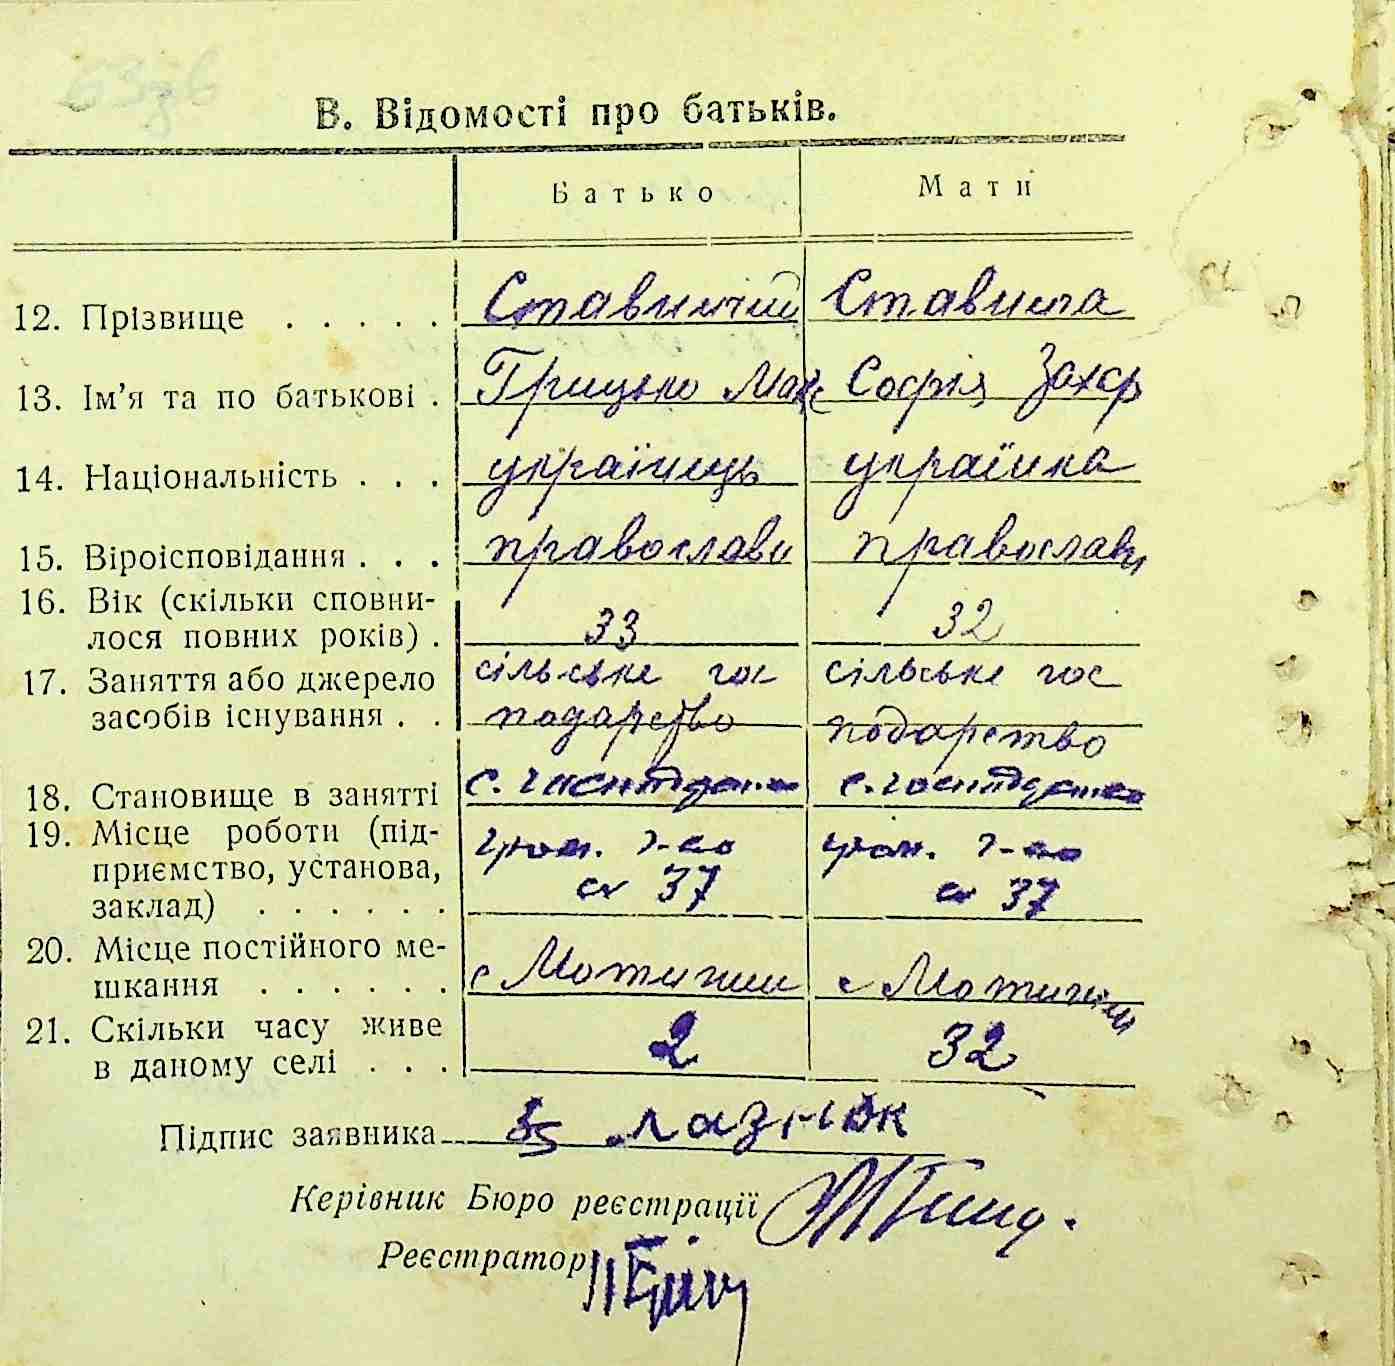 В. Відомості про батьків.
Батько Мати
12. Прізвище . . . . . Ставничий Ставнича
13. Ім’я та по батькові . Грицько Мак Софія Захар
14. Національність . . . українець українка
15. Віроісповідання . . . православн православн
16. Вік (скільки сповни-
лося повних років) . 33 32
17. Заняття або джерело сільське гос сільське гос
засобів існування . . подарство подарство
18. Становище в занятті
19. Місце роботи (під-
приємство, установа, гром. г-во гром. г-во
заклад) . . . . . . 37 37
20. Місце постійного ме-
шкання . . . . . . с Мотижин с Мотижин
21. Скільки часу живе
в даному селі . . . 2 32
Підпис заявника Лазнюк
Керівник Бюро реєстрації
Реєстратор